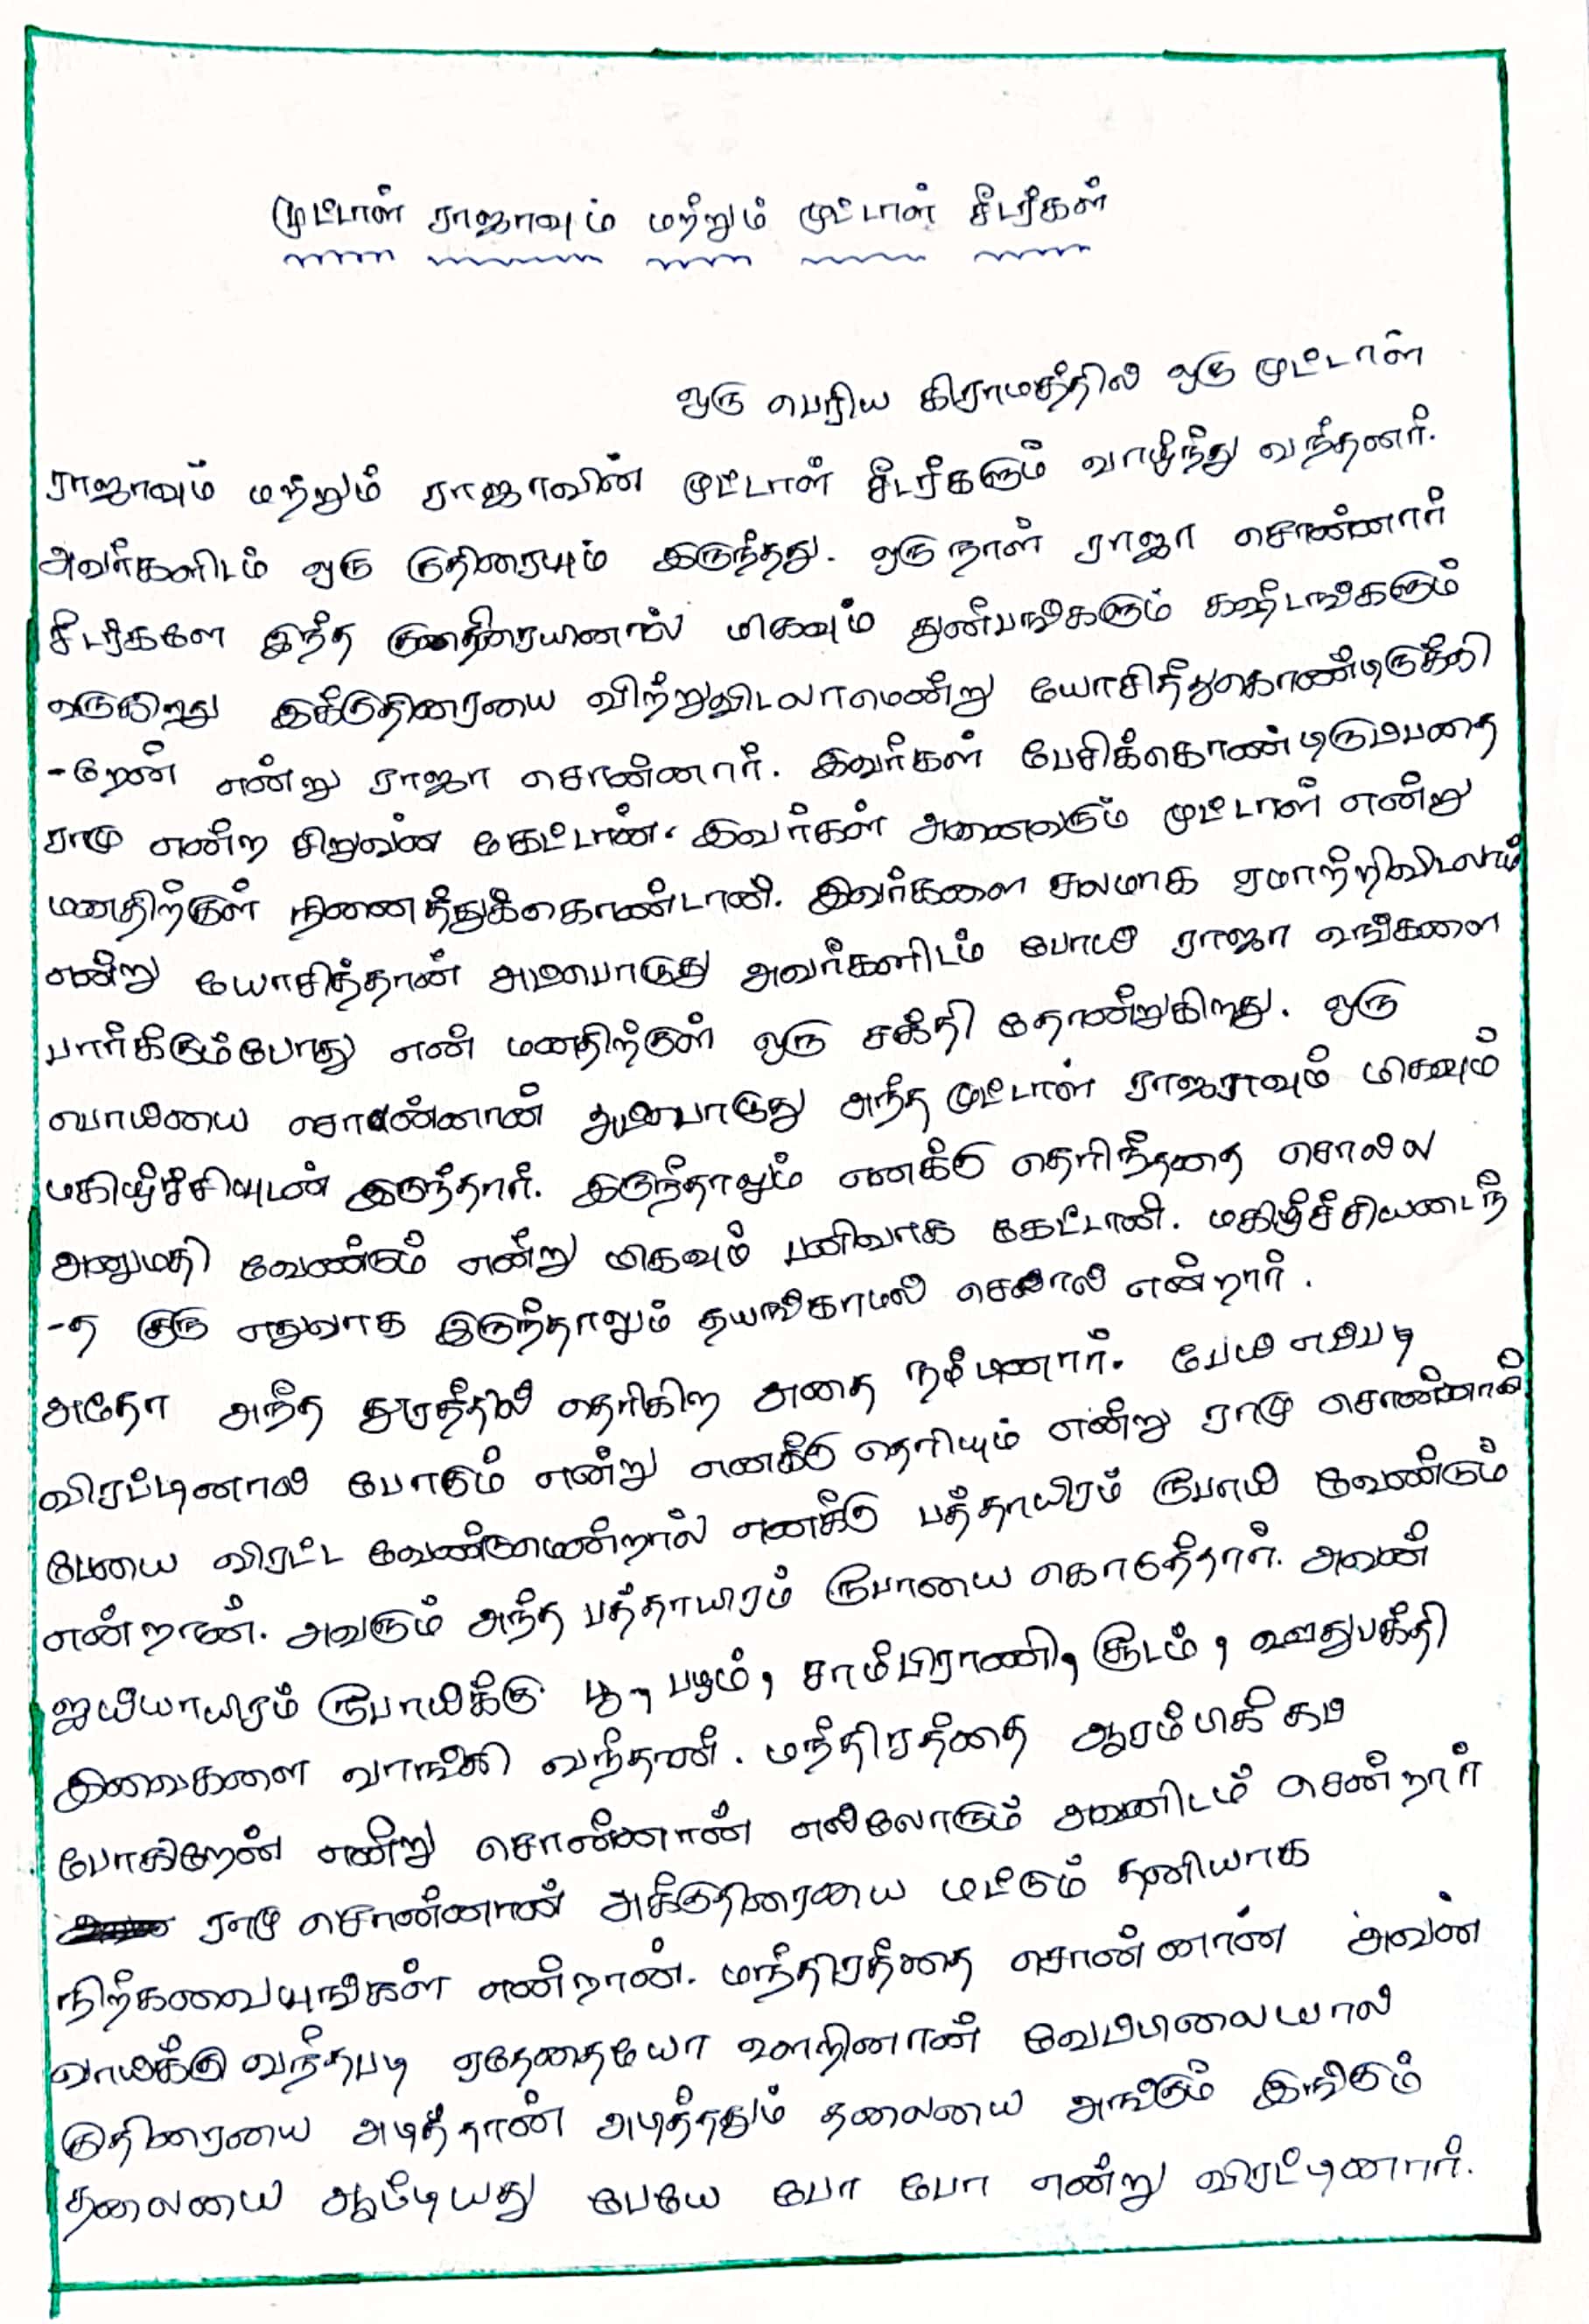 முட்டாள் ராஜாவும் மற்றும் முட்டாள் சீடர்கள்
ஒரு பெரிய கிராமத்தில் ஒரு முட்டாள்
ராஜாவும் மற்றும் ராஜாவின் முட்டாள் சீடர்களும் வாழ்ந்து வந்தனர்.
அவர்களிடம் ஒரு குதிரையும் இருந்தது. ஒரு நாள் ராஜா சொன்னார்
சீடர்களே இந்த குதிரையினால் மிகவும் துன்பங்களும் கஷ்டங்களும்
வருகிறது இக்குதிரையை விற்றுவிடலாமென்று யோசித்துகொண்டிருக்கி
-றேன் என்று ராஜா சொன்னார். இவர்கள் பேசிக்கொண்டிருப்பதை
ராமு என்ற சிறுவன் கேட்டான். இவர்கள் அனைவரும் முட்டாள் என்று
மனதிற்குள் நினைத்துக்கொண்டான். இவர்களை சுலபமாக ஏமாற்றிவிடலாம்
என்று யோசித்தான் அப்பொழுது அவர்களிடம் போய் ராஜா உங்களை
பார்க்கும்போது என் மனதிற்குள் ஒரு சக்தி தோன்றுகிறது. ஒரு
சொன்னான் அப்பொழுது அந்த முட்டாள் ராஜாவும் மிகவும்
மகிழ்ச்சியுடன் இருந்தார். இருந்தாலும் எனக்கு தெரிந்ததை சொல்ல
அனுமதி வேண்டும் என்று மிகவும் பனிவாக கேட்டான். மகிழ்ச்சியடைந்
-த குரு எதுவாக இருந்தாலும் தயங்காமல் சொல் என்றார்.
அதோ அந்த தூரத்தில் தெரிகிற அதை நம்பினார். பேய் எப்படி
விரட்டினால் போகும் என்று எனக்கு தெரியும் என்று ராமு சொன்னான்
பேயை விரட்ட வேண்டுமென்றால் எனக்கு பத்தாயிரம் ரூபாய் வேண்டும்
என்றான். அவரும் அந்த பத்தாயிரம் ரூபாயை கொடுத்தார். அவன்
ஐய்யாயிரம் ரூபாய்க்கு பூ, பழம், சாம்பிராணி, சூடம், ஊதுபக்தி
இவைகளை வாங்கி வந்தான். மந்திரத்தை ஆரம்பிக்க
போகிறேன் என்று சொன்னான் எல்லோரும் அவனிடம் சென்றார்
ராமு சொன்னான் அக்குதிரையை மட்டும் தனியாக
நிற்கவையுங்கள் என்றான். மந்திரத்தை சொன்னான் அவன்
வாய்க்கு வந்தபடி ஏதேதையோ உளறினான் வேப்பிலையால்
குதிரையை அடித்தான் அடித்ததும் தலையை அங்கும் இங்கும்
தலையை ஆட்டியது பேயே போ போ என்று விரட்டினார்.